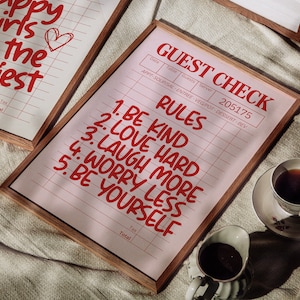 ppy
irls
the
iest
GUEST CHECK
205175
RULES
1. BE KIND
2. LOVE HARD
3. LAUGH MORE
4. WORRY LESS
5. BE YOURSELF
Tax
Total